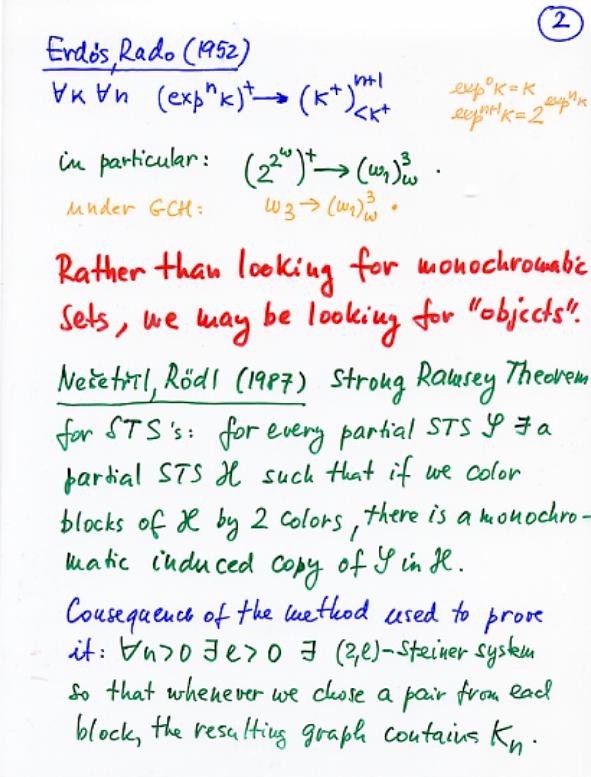 2
Erdős, Rado (1952)
∀κ ∀n (expⁿκ)⁺ → (κ⁺)ⁿ⁺¹_{<κ⁺}
exp⁰κ = κ
expⁿ⁺¹κ = 2^{expⁿκ}
in particular: (2^{2^ω})⁺ → (ω₁)³_ω .
under GCH: ω₃ → (ω₁)³_ω .
Rather than looking for monochromatic
sets, we may be looking for "objects".
Nešetřil, Rödl (1987) Strong Ramsey Theorem
for STS's: for every partial STS 𝒮 ∃ a
partial STS ℋ such that if we color
blocks of ℋ by 2 colors, there is a monochro-
matic induced copy of 𝒮 in ℋ.
Consequence of the method used to prove
it: ∀n>0 ∃ℓ>0 ∃ (2,ℓ)-Steiner system
so that whenever we chose a pair from each
block, the resulting graph contains Kₙ.